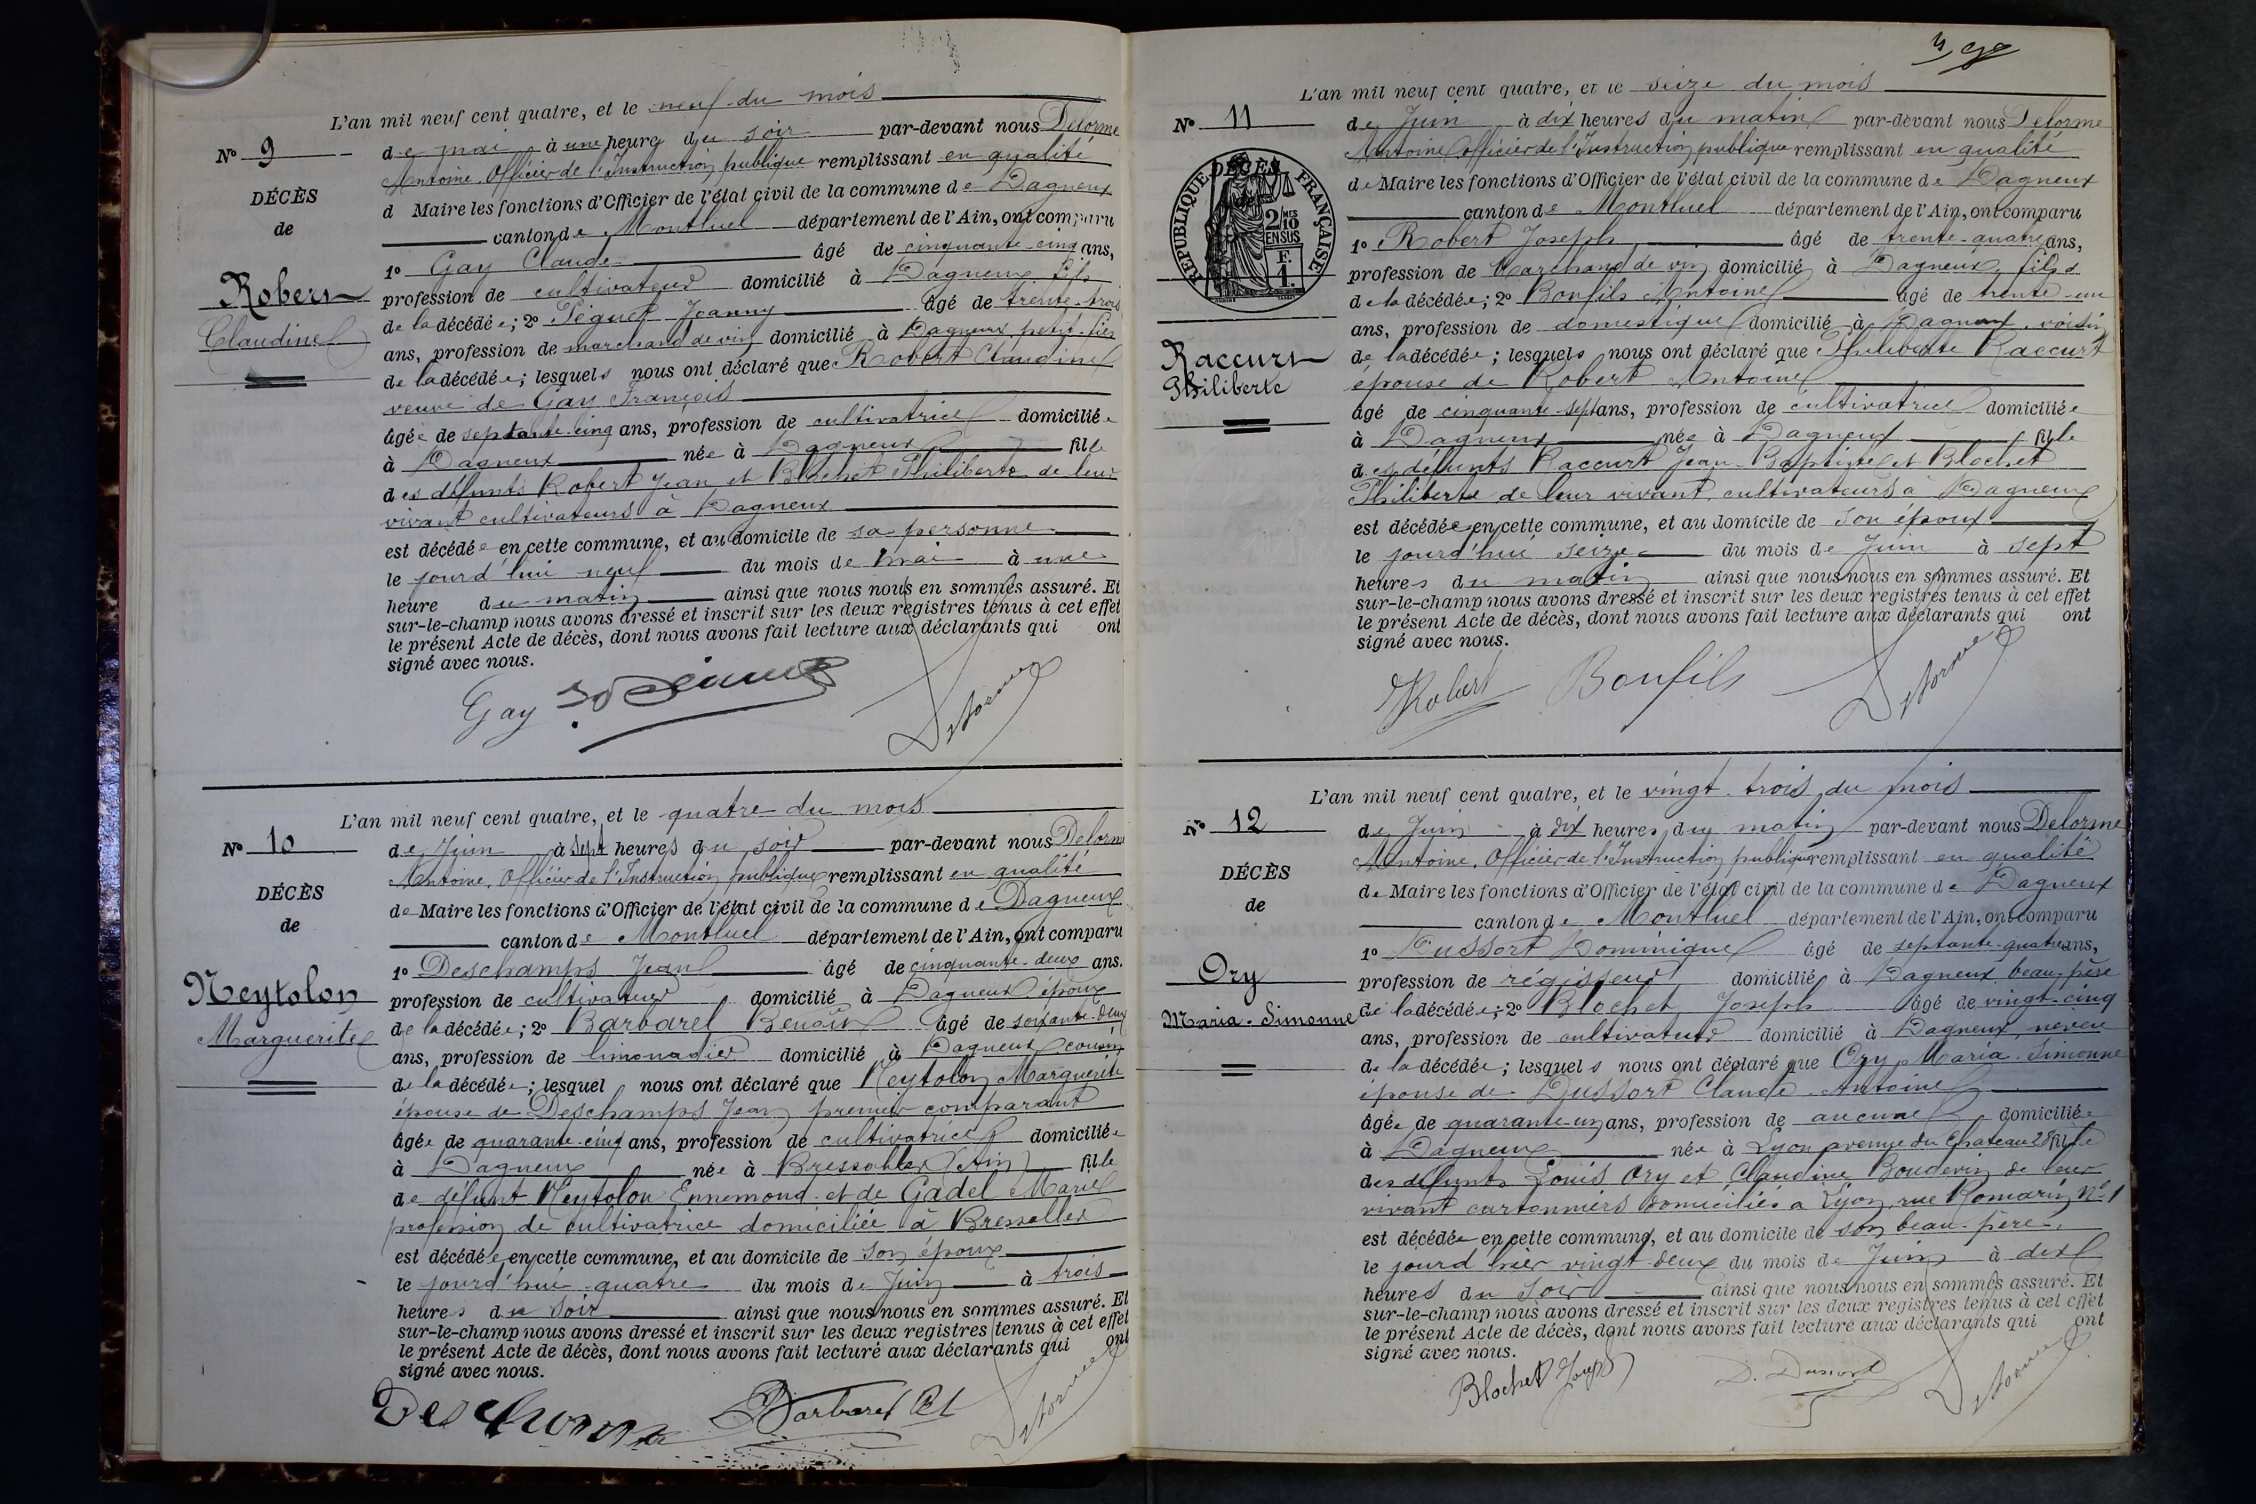 L'an mil neuf cent quatre, et le neuf du mois
N° 9
de mai à une heure du soir par-devant nous Delorme
Antoine, Officier de l'Instruction publique remplissant en qualité
DÉCÈS
d Maire les fonctions d'Officier de l'état civil de la commune de Dagneux
de
canton de Montluel département de l'Ain, ont comparu
1° Gay Claude âgé de cinquante-cinq ans,
Robert
profession de cultivateur domicilié à Dagneux fils
Claudine
de la décédée; 2° Péguet Joanny âgé de trente-trois
ans, profession de marchand de vin domicilié à Dagneux petit-fils
de la décédée; lesquels nous ont déclaré que Robert Claudine
veuve de Gay François
âgée de septante-cinq ans, profession de cultivatrice domiciliée
à Dagneux née à Dagneux fille
des défunts Robert Jean et Blochet Philiberte de leur
vivant cultivateurs à Dagneux
est décédée en cette commune, et au domicile de sa personne
le jourd'hui neuf du mois de mai à une
heure du matin ainsi que nous nous en sommes assuré. Et
sur-le-champ nous avons dressé et inscrit sur les deux registres tenus à cet effet
le présent Acte de décès, dont nous avons fait lecture aux déclarants qui ont
signé avec nous.
Gay Delorme
L'an mil neuf cent quatre, et le quatre du mois
N° 10
de Juin à sept heures du soir par-devant nous Delorme
Antoine, Officier de l'Instruction publique remplissant en qualité
DÉCÈS
de Maire les fonctions d'Officier de l'état civil de la commune de Dagneux
de
canton de Montluel département de l'Ain, ont comparu
1° Deschamps Jean âgé de cinquante-deux ans.
Neytolon
profession de cultivateur domicilié à Dagneux époux
Marguerite
de la décédée; 2° Barbarel Benoît âgé de soixante-deux
ans, profession de limonadier domicilié à Dagneux cousin
de la décédée; lesquel nous ont déclaré que Neytolon Marguerite
épouse de Deschamps Jean premier comparant
âgée de quarante-cinq ans, profession de cultivatrice domiciliée
à Dagneux née à Bressolles (Ain) fille
de défunt Neytolon Ennemond et de Gadel Marie
profession de cultivatrice domiciliée à Bressolles
est décédée en cette commune, et au domicile de son époux
le jourd'hui quatre du mois de Juin à trois
heures du soir ainsi que nous nous en sommes assuré. Et
sur-le-champ nous avons dressé et inscrit sur les deux registres tenus à cet effet
le présent Acte de décès, dont nous avons fait lecture aux déclarants qui ont
signé avec nous.
Deschamps Barbarel Bt Delorme
L'an mil neuf cent quatre, et le seize du mois
N° 11
de Juin à dix heures du matin par-devant nous Delorme
Antoine Officier de l'Instruction publique remplissant en qualité
de Maire les fonctions d'Officier de l'état civil de la commune de Dagneux
RÉPUBLIQUE FRANÇAISE
DÉCÈS
de
2/10 MES EN SUS
1 F.
canton de Montluel département de l'Ain, ont comparu
1° Robert Joseph âgé de trente-quatre ans,
profession de Marchand de vin domicilié à Dagneux, fils
de la décédée; 2° Bonfils Antoine âgé de trente-un
ans, profession de domestique domicilié à Dagneux, voisin
Raccurt
de la décédée; lesquels nous ont déclaré que Philiberte Raccurt
Philiberte
épouse de Robert Antoine
âgé de cinquante-sept ans, profession de cultivatrice domiciliée
à Dagneux née à Dagneux fille
des défunts Raccurt Jean-Baptiste et Blochet
Philiberte de leur vivant cultivateurs à Dagneux
est décédée en cette commune, et au domicile de son époux
le jourd'hui seize du mois de Juin à sept
heures du matin ainsi que nous nous en sommes assuré. Et
sur-le-champ nous avons dressé et inscrit sur les deux registres tenus à cet effet
le présent Acte de décès, dont nous avons fait lecture aux déclarants qui ont
signé avec nous.
Robert Bonfils Delorme
L'an mil neuf cent quatre, et le vingt-trois du mois
N° 12
de Juin à dix heures du matin par-devant nous Delorme
Antoine, Officier de l'Instruction publique remplissant en qualité
DÉCÈS
de Maire les fonctions d'Officier de l'état civil de la commune de Dagneux
de
canton de Montluel département de l'Ain, ont comparu
1° Dussort Dominique âgé de septante-quatre ans,
Ory
profession de régisseur domicilié à Dagneux beau-père
Maria-Simonne
de la décédée; 2° Blochet Joseph âgé de vingt-cinq
ans, profession de cultivateur domicilié à Dagneux, neveu
de la décédée; lesquels nous ont déclaré que Ory Maria-Simonne
épouse de Dussort Claude-Antoine
âgée de quarante-un ans, profession de aucune domiciliée
à Dagneux née à Lyon avenue du Chateau 28 fille
des défunts Louis Ory et Claudine Boudevin de leur
vivant cartonniers domiciliés à Lyon, rue Romarin N° 1
est décédée en cette commune, et au domicile de son beau-père
le jourd hier vingt-deux du mois de Juin à dix
heures du soir ainsi que nous nous en sommes assuré. Et
sur-le-champ nous avons dressé et inscrit sur les deux registres tenus à cet effet
le présent Acte de décès, dont nous avons fait lecture aux déclarants qui ont
signé avec nous.
Blochet Joseph D. Dussort Delorme